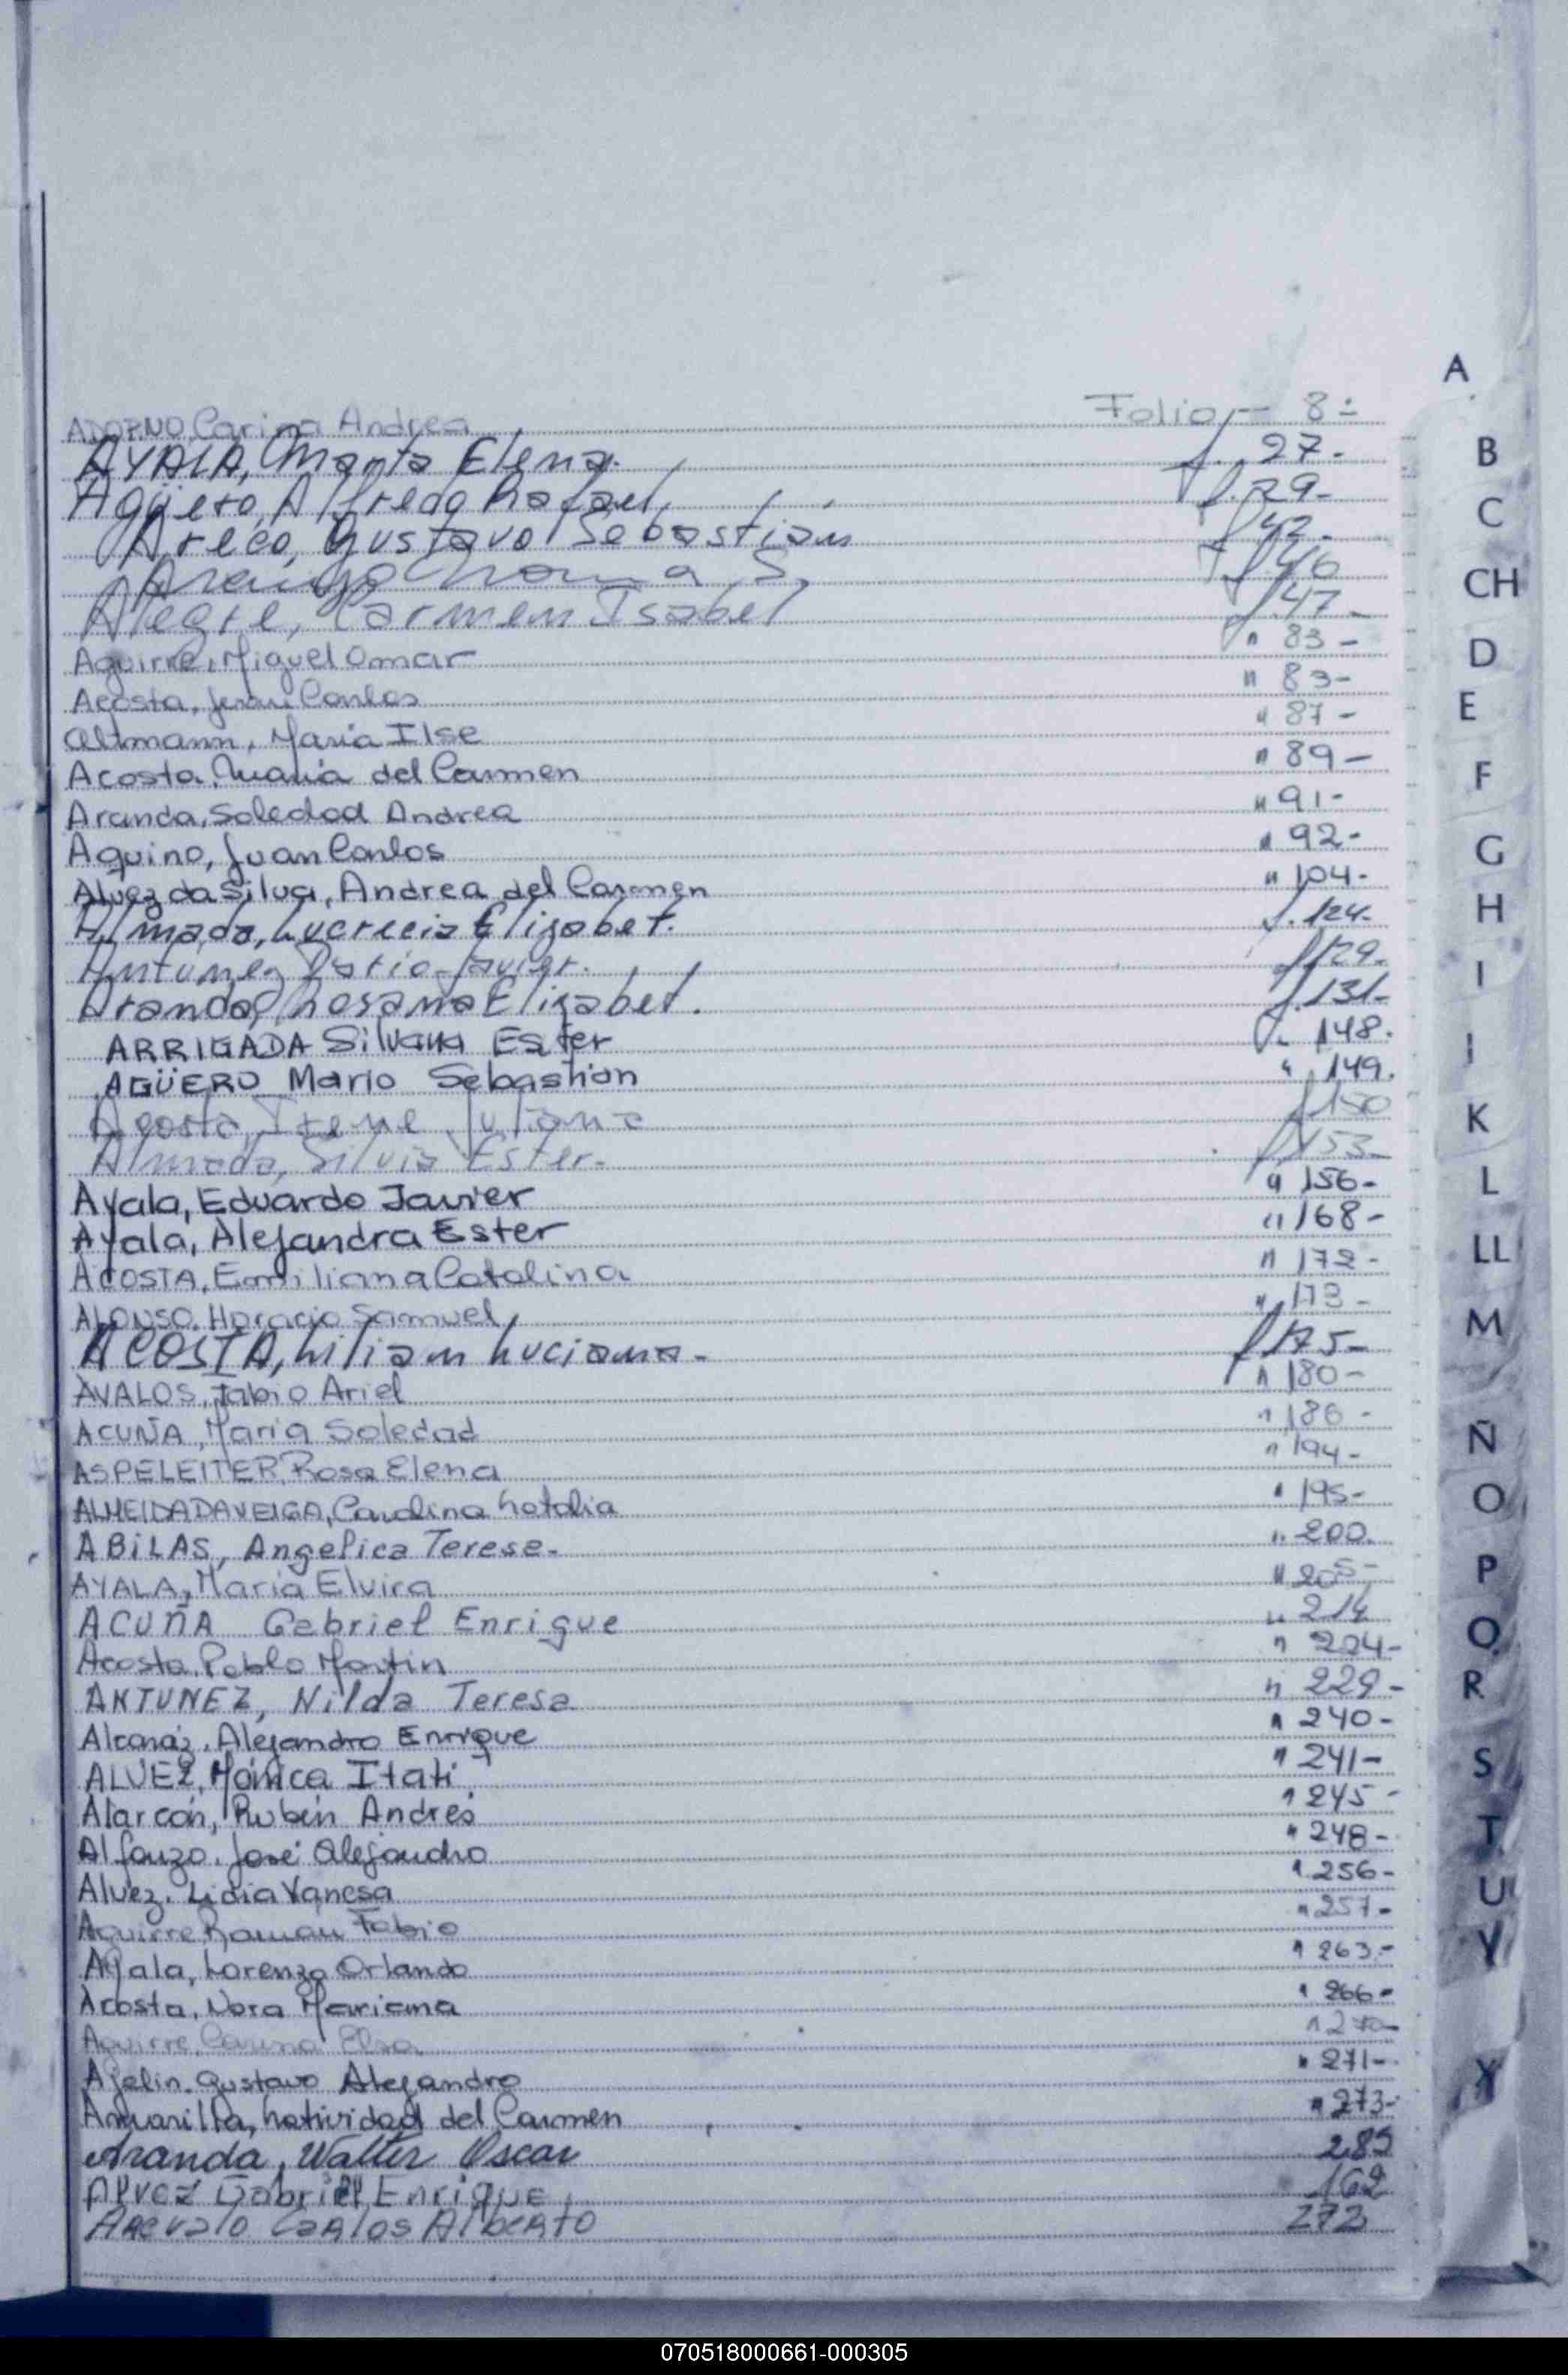 A
ADORNO, Carina Andrea Folio,- 8-
AYALA, Marta Elena. f. 27-
Agüero, Alfredo Rafael, f. 29-
Areco, Gustavo Sebastián f 42-
S. f 46
Alegre, Carmen Isabel f. 47-
Aguirre, Miguel Omar " 83-
Acosta, Juan Carlos " 83-
Altmann, María Ilse " 87-
Acosta, María del Carmen " 89-
Aranda, Soledad Andrea " 91-
Aquino, Juan Carlos " 92-
Alvez da Silva, Andrea del Carmen " 104-
Almada, Lucrecia Elizabet. f. 124-
Antúnez Dario Javier. f 129-
Aranda, Rosana Elizabet. f. 131-
ARRIGADA Silvana Ester " 148.
AGÜERO Mario Sebastian " 149.
Acosta, Irene Juliana f 150
Almada, Silvia Ester- f 153-
Ayala, Eduardo Javier " 156-
Ayala, Alejandra Ester " 168-
ACOSTA, Emiliana Catalina " 172-
ALONSO, Horacio Samuel " 173-
ACOSTA, Liliam Luciana- f 175-
AVALOS, Fabio Ariel " 180-
ACUÑA, María Soledad " 186-
ASPELEITER, Rosa Elena " 194-
ALMEIDA DA VEIGA, Carolina Natalia " 195-
ABILAS, Angelica Teresa- " 200.
AYALA, María Elvira " 205-
ACUÑA Gabriel Enrique " 214
Acosta, Pablo Martin " 204-
ANTUNEZ, Nilda Teresa " 229-
Alcaráz, Alejandro Enrique " 240-
ALVEZ, Mónica Itatí " 241-
Alarcón, Rubén Andrés " 245-
Alfonzo, José Alejandro " 248-
Alvez, Lidia Vanesa " 256-
Aguirre Ramon Fabio " 257-
Ayala, Lorenzo Orlando " 263-
Acosta, Nora Mariana " 266-
Aguirre, Elsa " 270-
Ajelin, Gustavo Alejandro " 271-
Amarilla, Natividad del Carmen " 273-
Aranda, Walter Oscar 285
Alvez Gabriel Enrique 162
Arevalo Carlos Alberto 272
B
C
CH
D
E
F
G
H
I
J
K
L
LL
M
Ñ
O
P
Q
R
S
T
U
Y
X
070518000661-000305